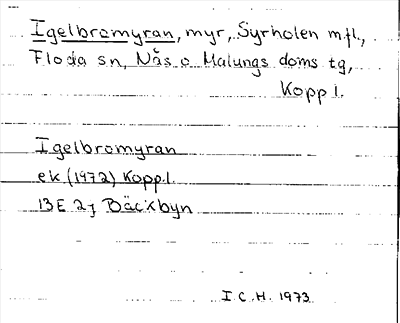 Igelbromyran, myr, Syrholen m.fl.,
Floda sn, Nås o Malungs doms tg,
Kopp l.
Igelbromyran
ek (1972) Kopp.l.
13E 2j Bäckbyn
I.C.H. 1973